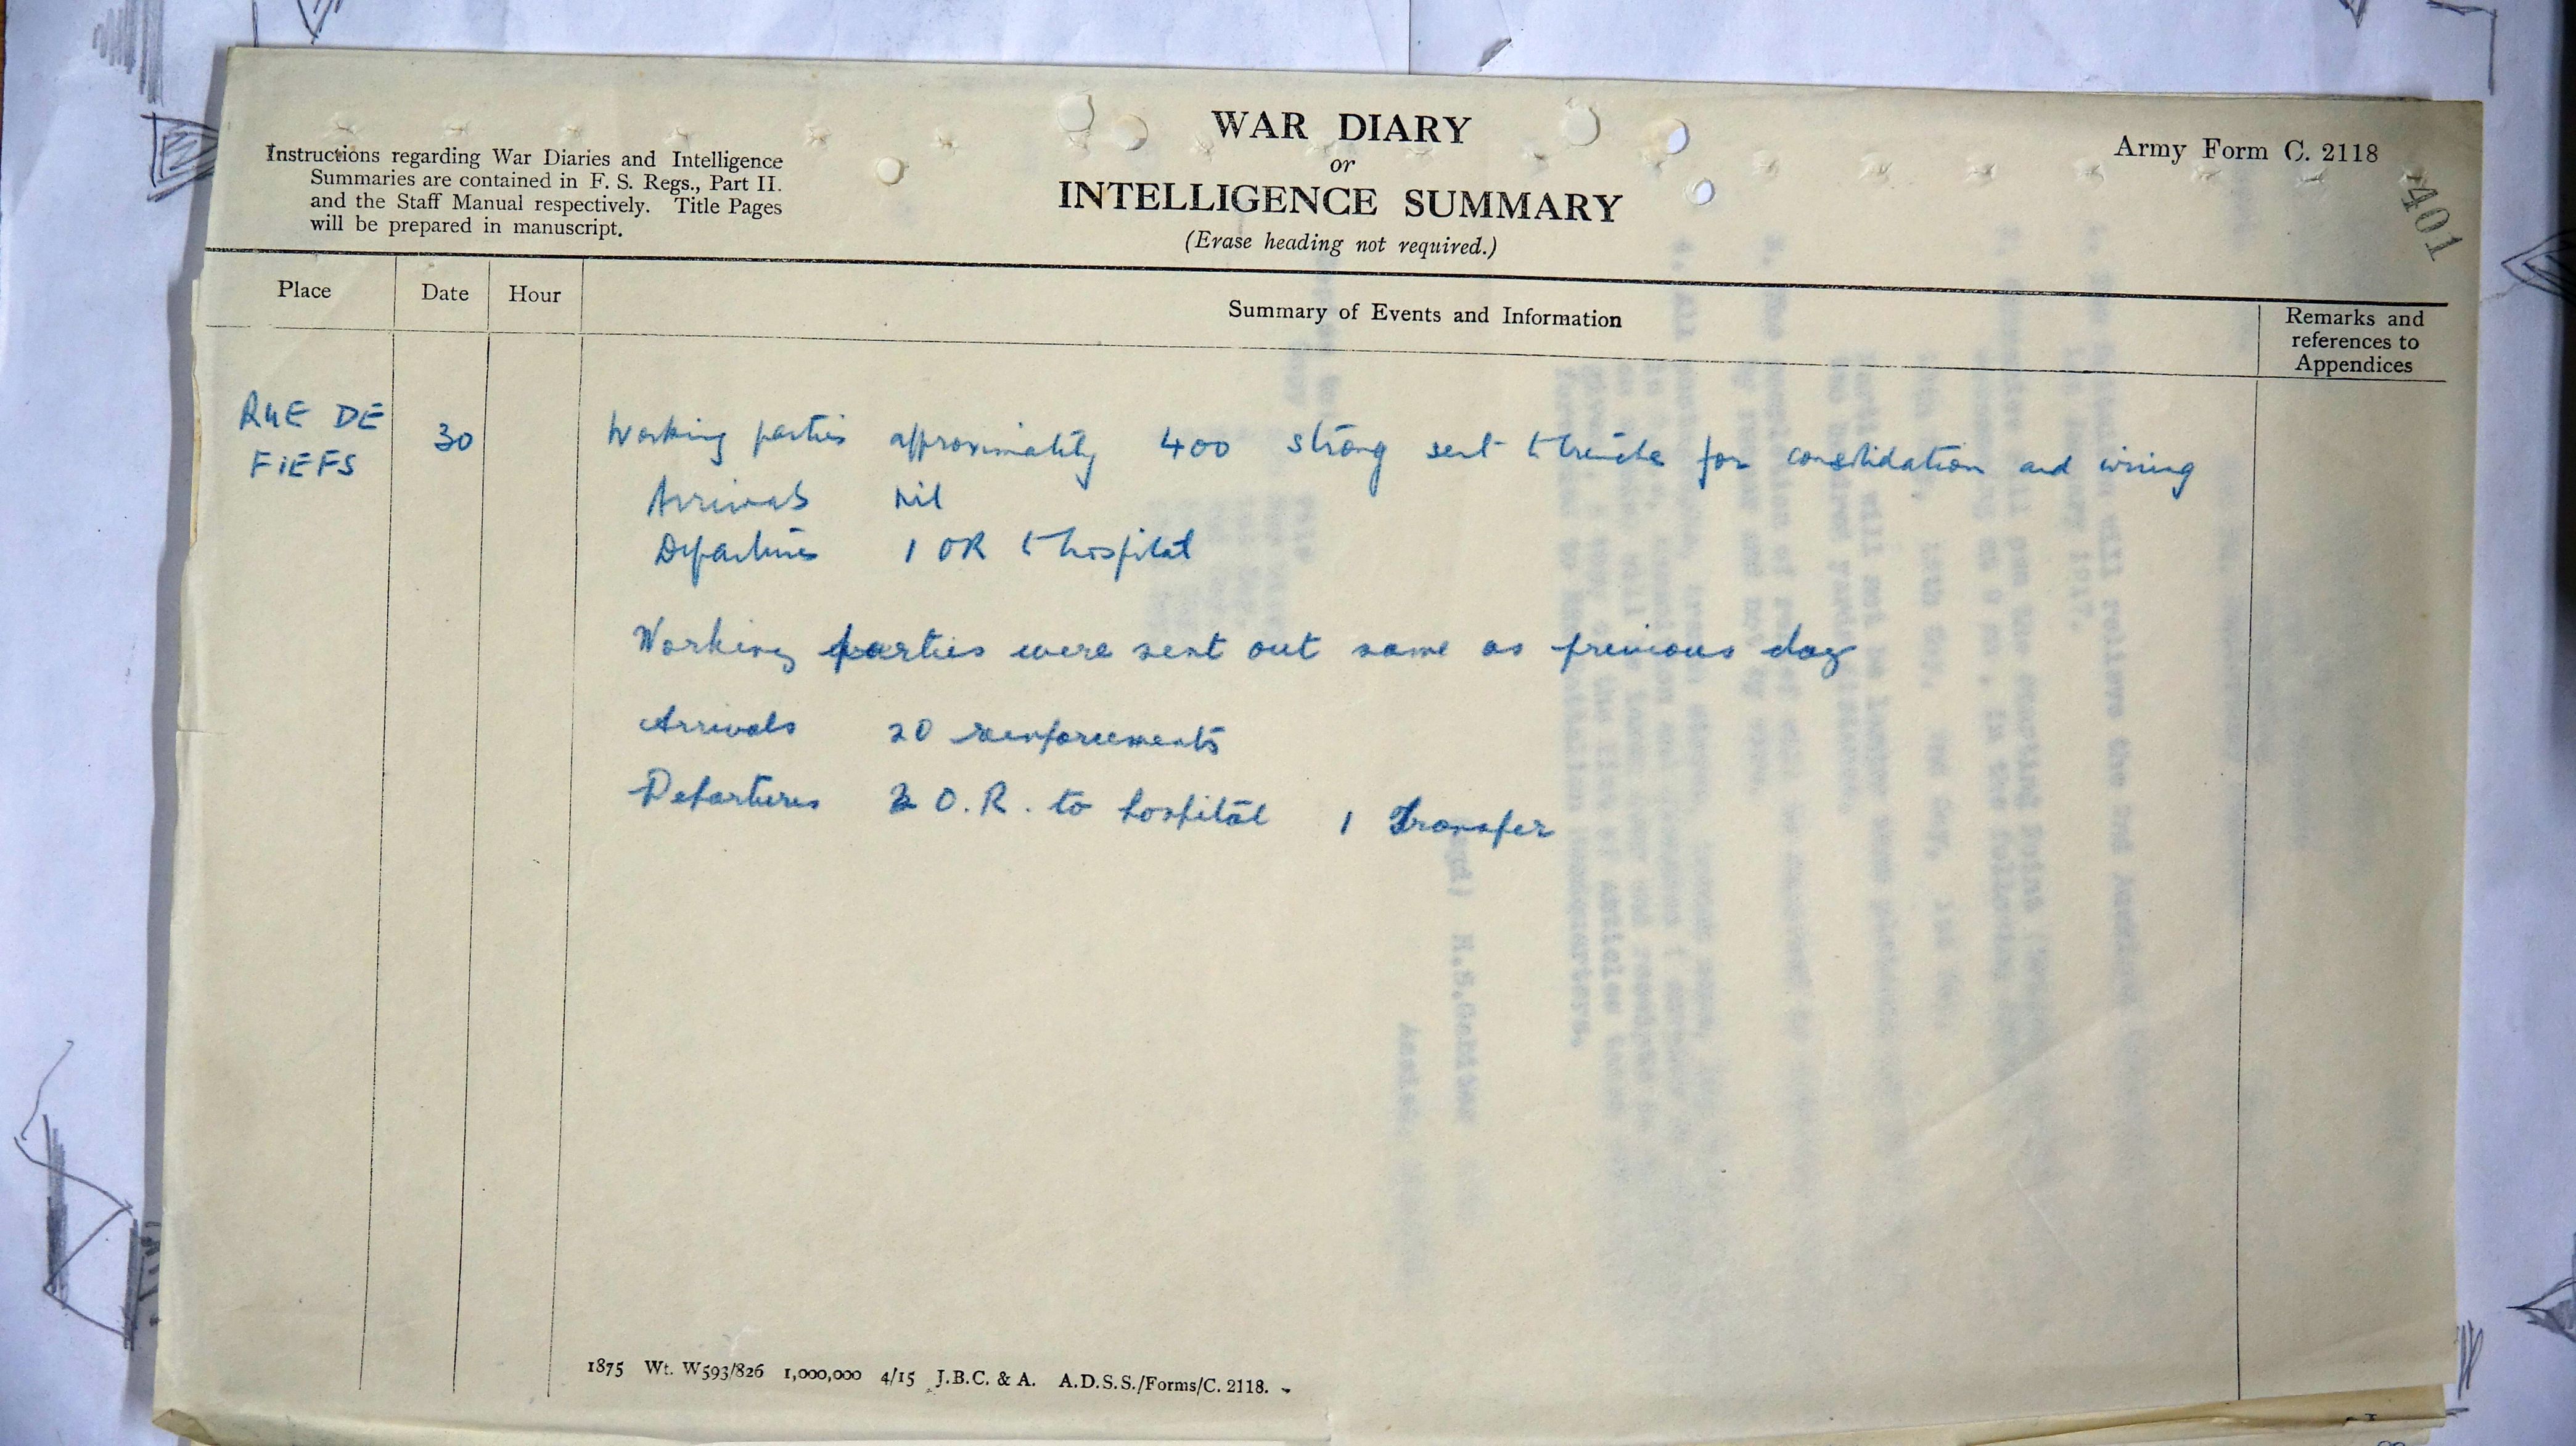 Instructions regarding War Diaries and Intelligence
Summaries are contained in F. S. Regs., Part II.
and the Staff Manual respectively. Title Pages
will be prepared in manuscript.
WAR DIARY
or
INTELLIGENCE SUMMARY
(Erase heading not required.)
Army Form C. 2118
401
Place
Date
Hour
Summary of Events and Information
Remarks and
references to
Appendices
RUE DE
FIEFS
30
Working parties approximately 400 strong sent to trenches for consolidation and wiring
Arrivals nil
Departures 1 OR to hospital
Working parties were sent out same as previous day
Arrivals 20 reinforcements
Departures 2 O.R. to hospital 1 Transfer
1875 Wt. W593/826 1,000,000 4/15 J.B.C. & A. A.D.S.S./Forms/C. 2118.